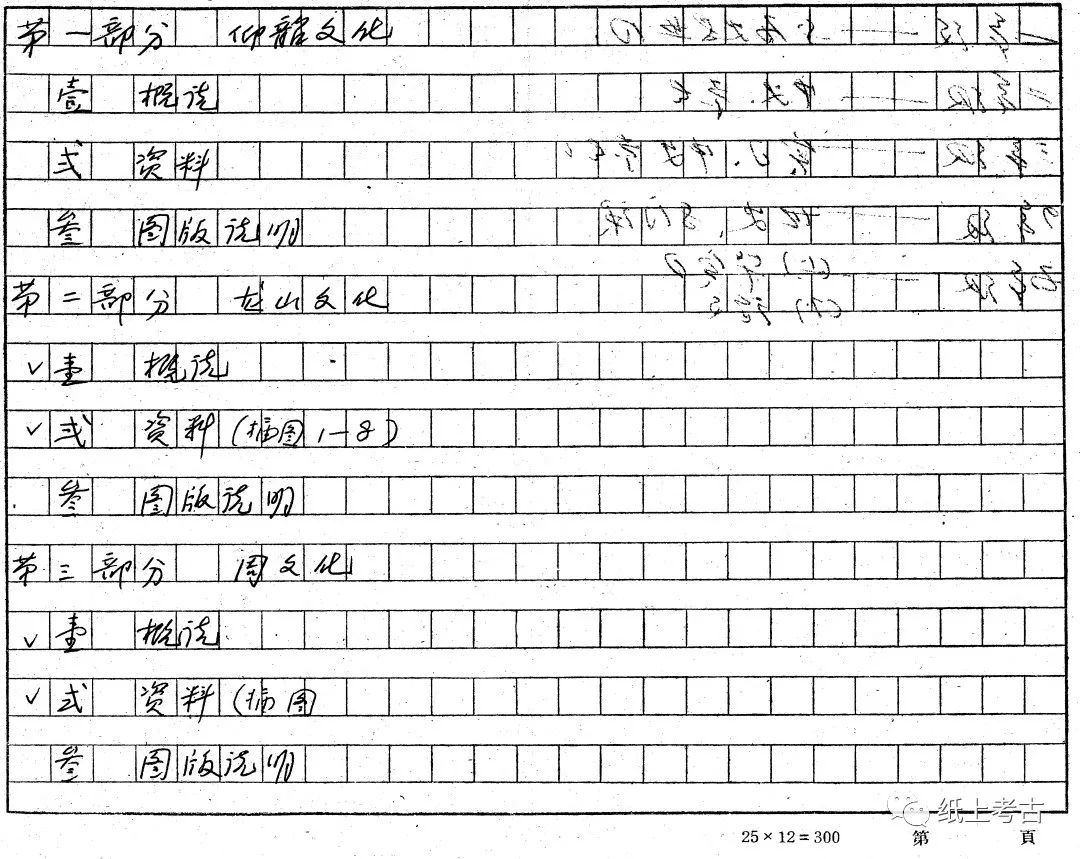 第一部分 仰韶文化
壹 概说
弍 资料
叁 图版说明
第二部分 龙山文化
✓ 壹 概说
✓ 弍 资料(插图1—8)
叁 图版说明
第三部分 周文化
✓ 壹 概说
✓ 弍 资料(插图
叁 图版说明
纸上考古
25×12=300 第 頁